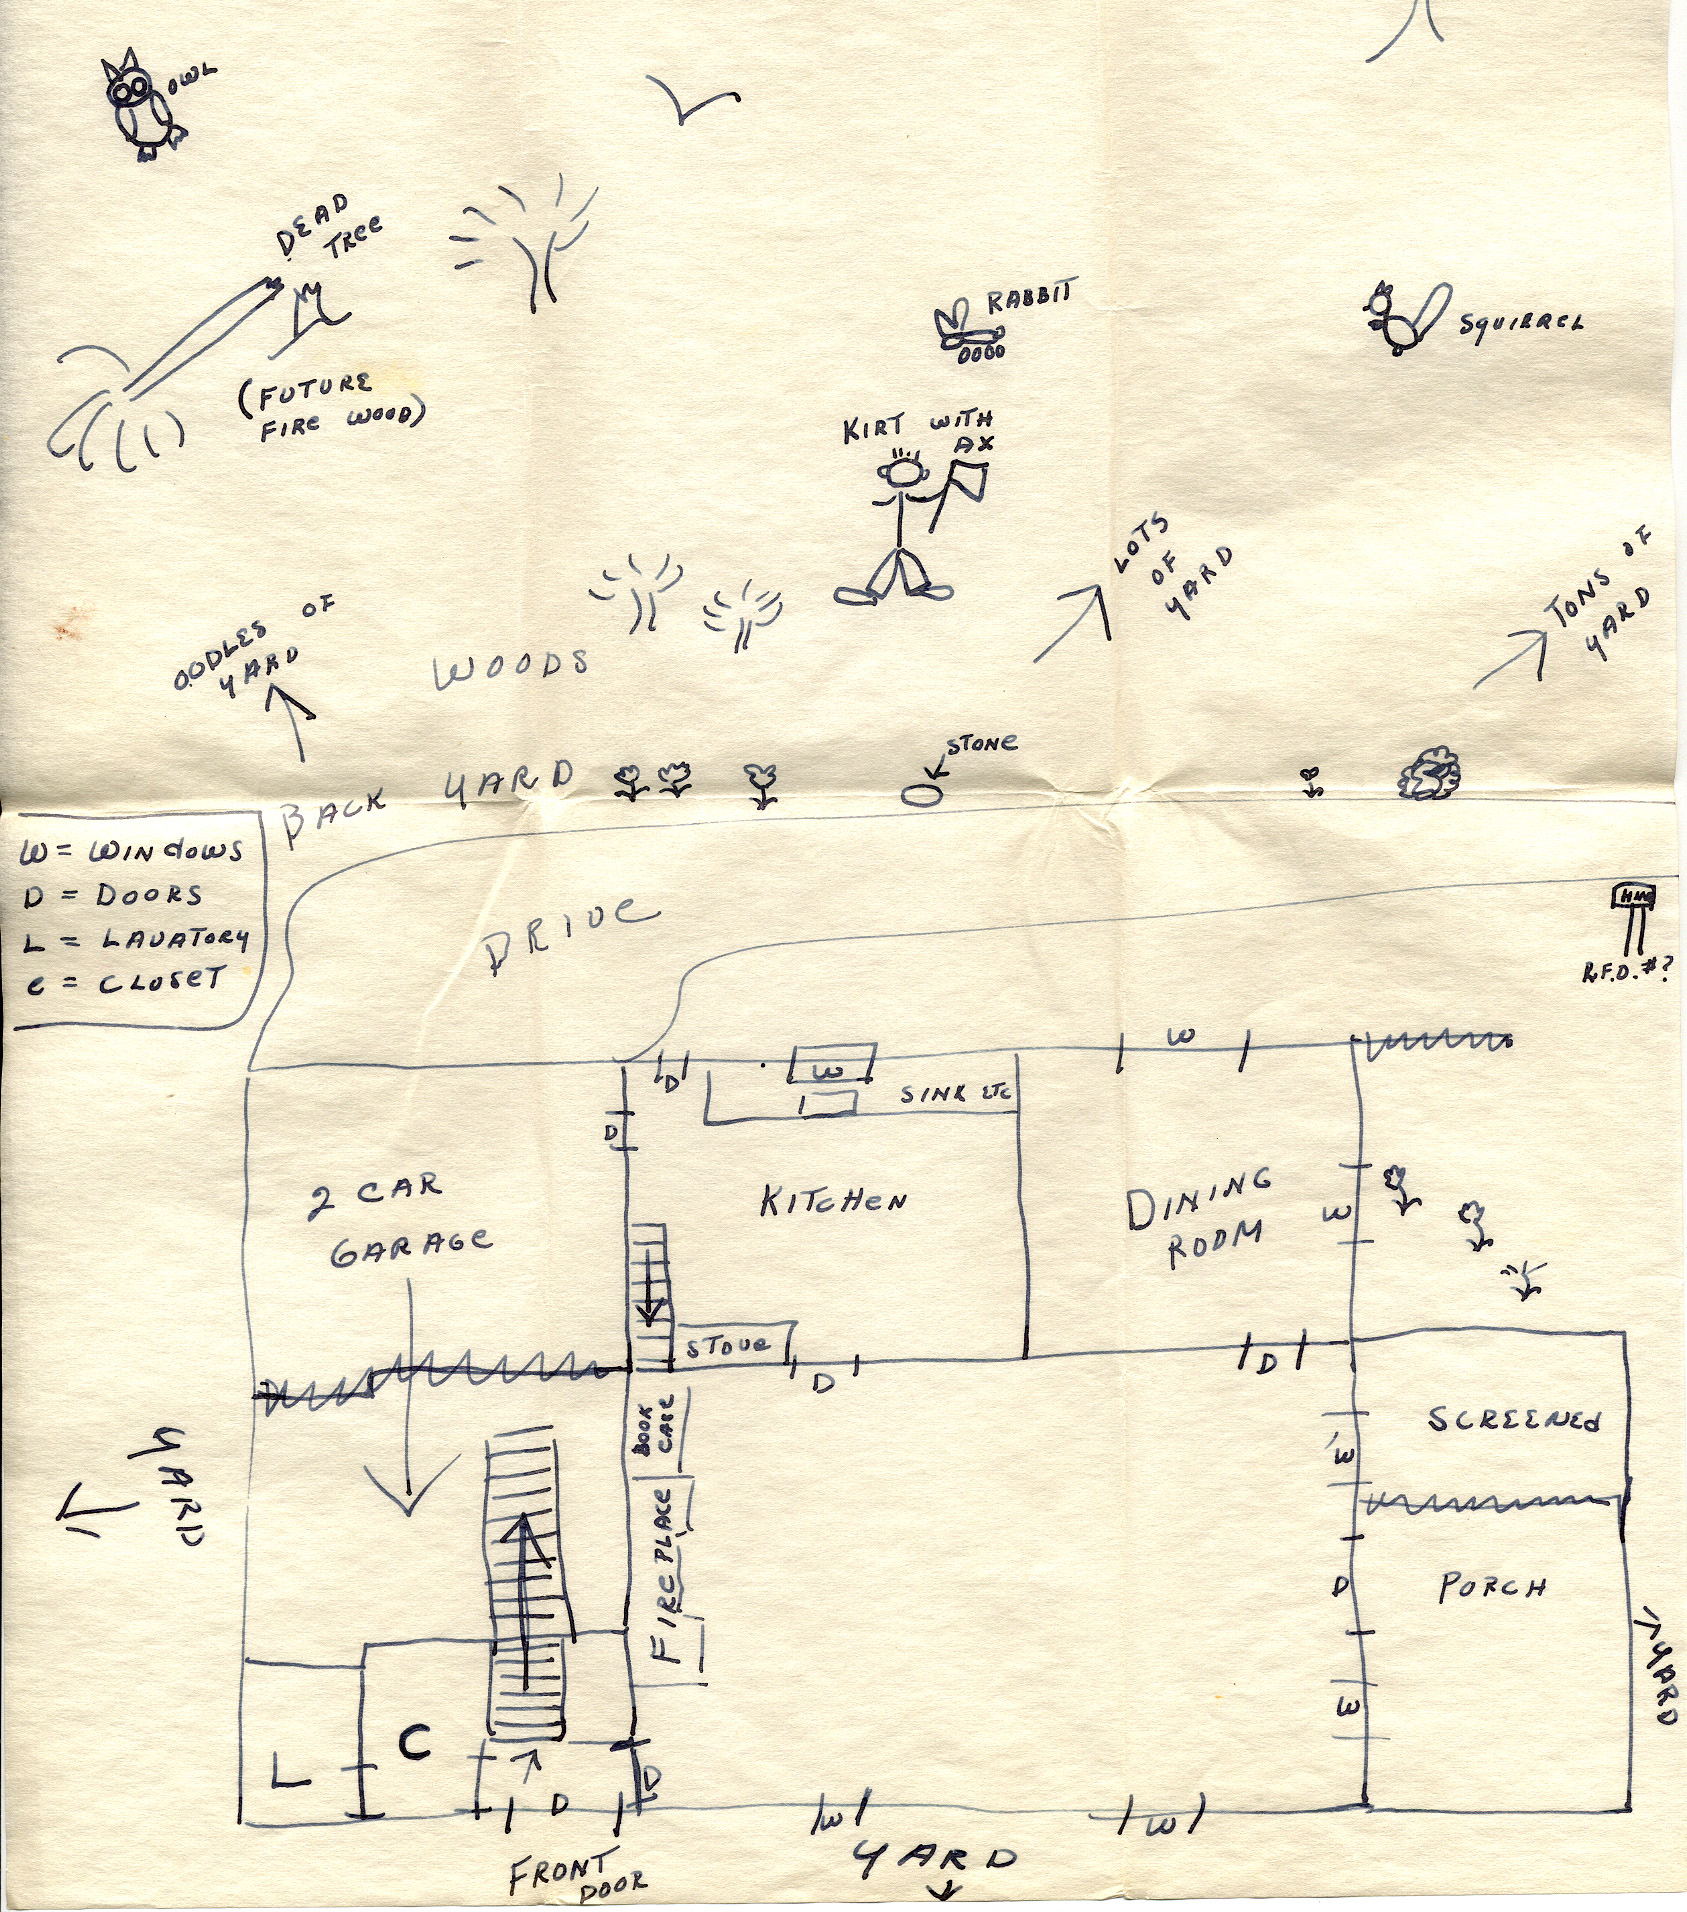 OWL
DEAD
TREE
(FUTURE
FIRE WOOD)
RABBIT
SQUIRREL
KIRT WITH
AX
OODLES OF
YARD
WOODS
LOTS
OF
YARD
TONS OF
YARD
BACK YARD
STONE
W = WINDOWS
D = DOORS
L = LAVATORY
C = CLOSET
DRIVE
R.F.D. #?
W
D
W
SINK ETC
D
2 CAR
GARAGE
KITCHEN
DINING
ROOM
W
STOVE
D
D
BOOK
CASE
SCREENED
W
YARD
FIRE PLACE
D
PORCH
YARD
W
C
L
D
D
W
W
FRONT
DOOR
YARD